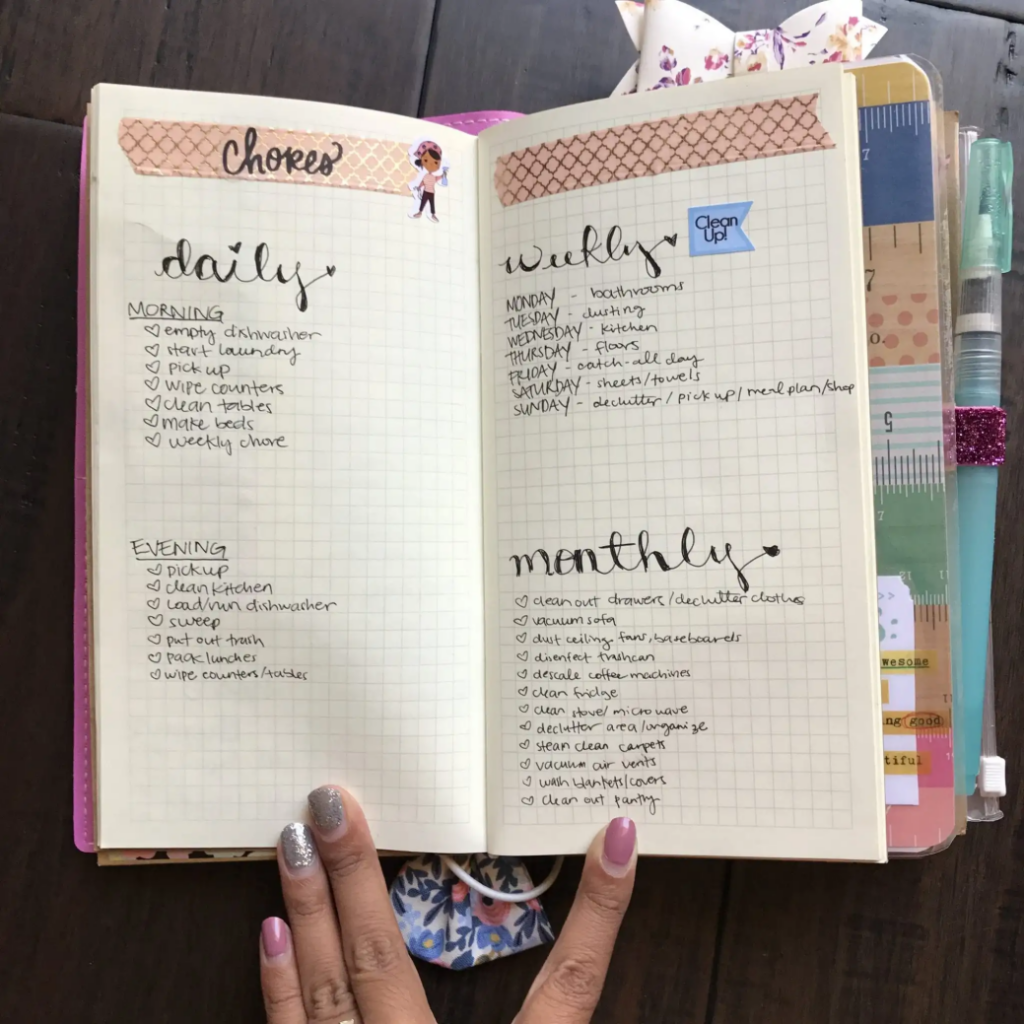 Chores
daily
MORNING
empty dishwasher
start laundry
pick up
wipe counters
clean tables
make beds
weekly chore
EVENING
pickup
clean kitchen
load/run dishwasher
sweep
put out trash
pack lunches
wipe counters/tables
weekly
Clean
Up!
MONDAY - bathrooms
TUESDAY - dusting
WEDNESDAY - kitchen
THURSDAY - floors
FRIDAY - catch-all day
SATURDAY - sheets/towels
SUNDAY - declutter/pick up/meal plan/shop
monthly
clean out drawers/declutter clothes
vacuum sofa
dust ceiling fans, baseboards
disenfect trashcan
descale coffee machines
clean fridge
clean stove/microwave
declutter area/organize
steam clean carpets
vacuum air vents
wash blankets/covers
clean out pantry
7
5
7
wesome
ng good
tiful